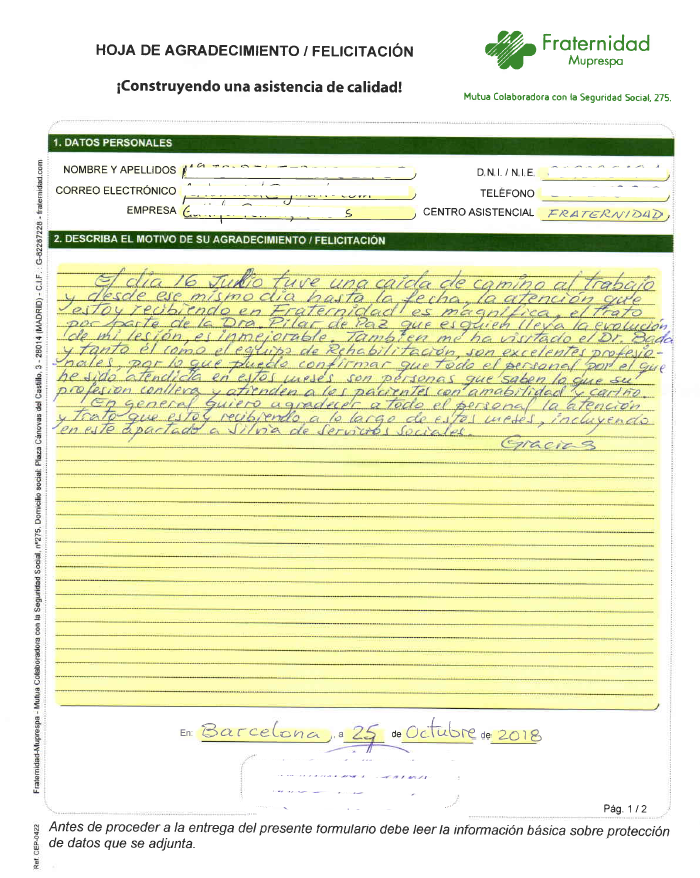 HOJA DE AGRADECIMIENTO / FELICITACIÓN
¡Construyendo una asistencia de calidad!
Fraternidad
Muprespa
Mutua Colaboradora con la Seguridad Social, 275.
1. DATOS PERSONALES
NOMBRE Y APELLIDOS
D.N.I. / N.I.E.
CORREO ELECTRÓNICO
TELÉFONO
EMPRESA
CENTRO ASISTENCIAL FRATERNIDAD
2. DESCRIBA EL MOTIVO DE SU AGRADECIMIENTO / FELICITACIÓN
El día 16 Julio tuve una caída de camino al trabajo
y desde ese mismo día hasta la fecha, la atención que
estoy recibiendo en Fraternidad es magnífica, el trato
por parte de la Dra. Pilar de Paz que es quien lleva la evolución
de mi lesión, es inmejorable. También me ha visitado el Dr. Bada
y tanto él como el equipo de Rehabilitación, son excelentes profesio-
nales, por lo que puedo confirmar que todo el personal por el que
he sido atendida en estos meses son personas que saben lo que su
profesión conlleva y atienden a los pacientes con amabilidad y cariño.
En general quiero agradecer a todo el personal la atención
y trato que estoy recibiendo a lo largo de estos meses, incluyendo
en este apartado a Silvia de Servicios Sociales.
Gracias
En: Barcelona, a 25 de Octubre de 2018
Pág. 1 / 2
Antes de proceder a la entrega del presente formulario debe leer la información básica sobre protección
de datos que se adjunta.
Fraternidad-Muprespa - Mutua Colaboradora con la Seguridad Social, nº275. Domicilio social: Plaza Cánovas del Castillo, 3 - 28014 (MADRID) - C.I.F. : G-82287228 - fraternidad.com
Ref. CEP-0422